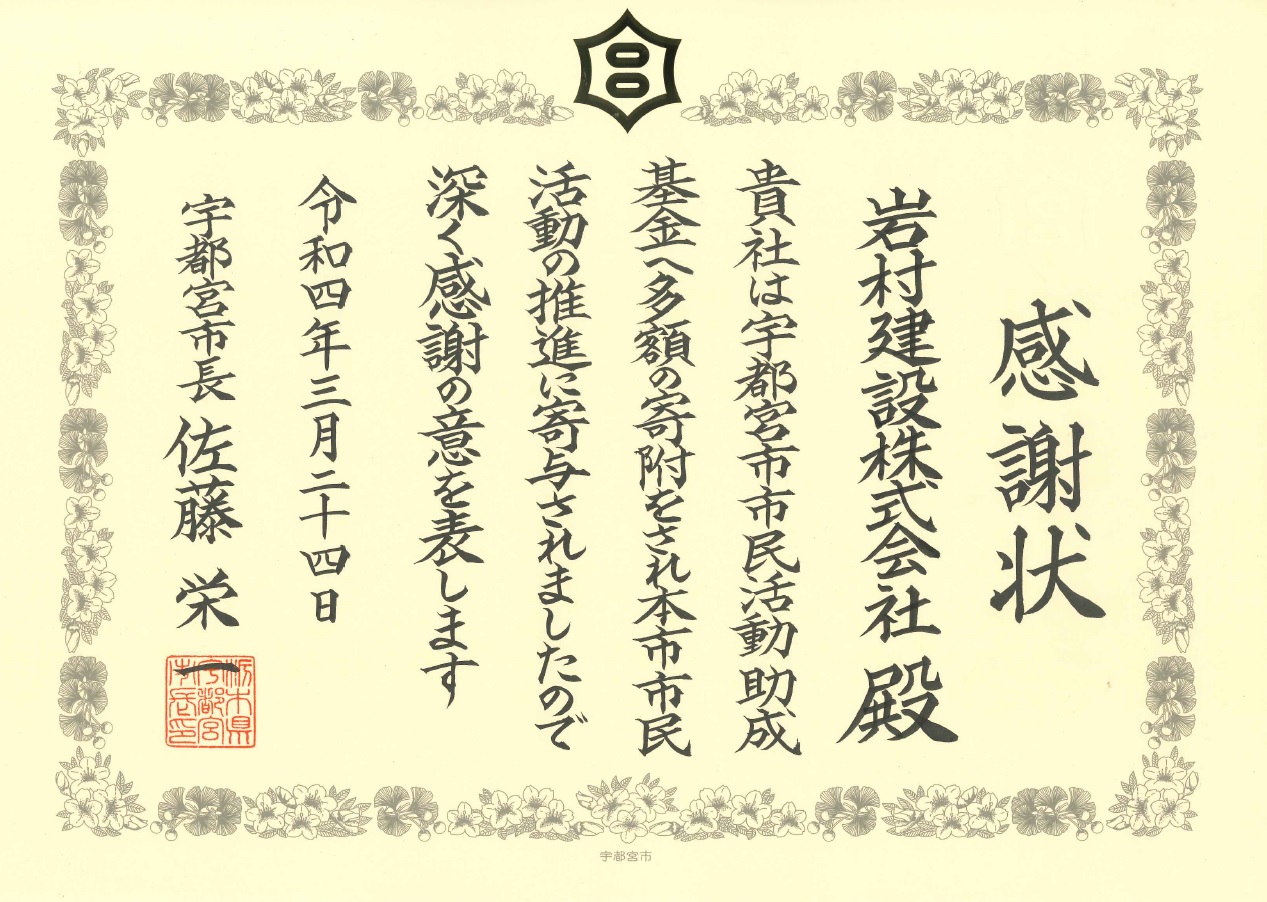 感謝状
岩村建設株式会社 殿
貴社は宇都宮市市民活動助成
基金へ多額の寄附をされ本市市民
活動の推進に寄与されましたので
深く感謝の意を表します
令和四年三月二十四日
宇都宮市長 佐藤 栄一
栃木県
宇都宮
市長印
宇都宮市